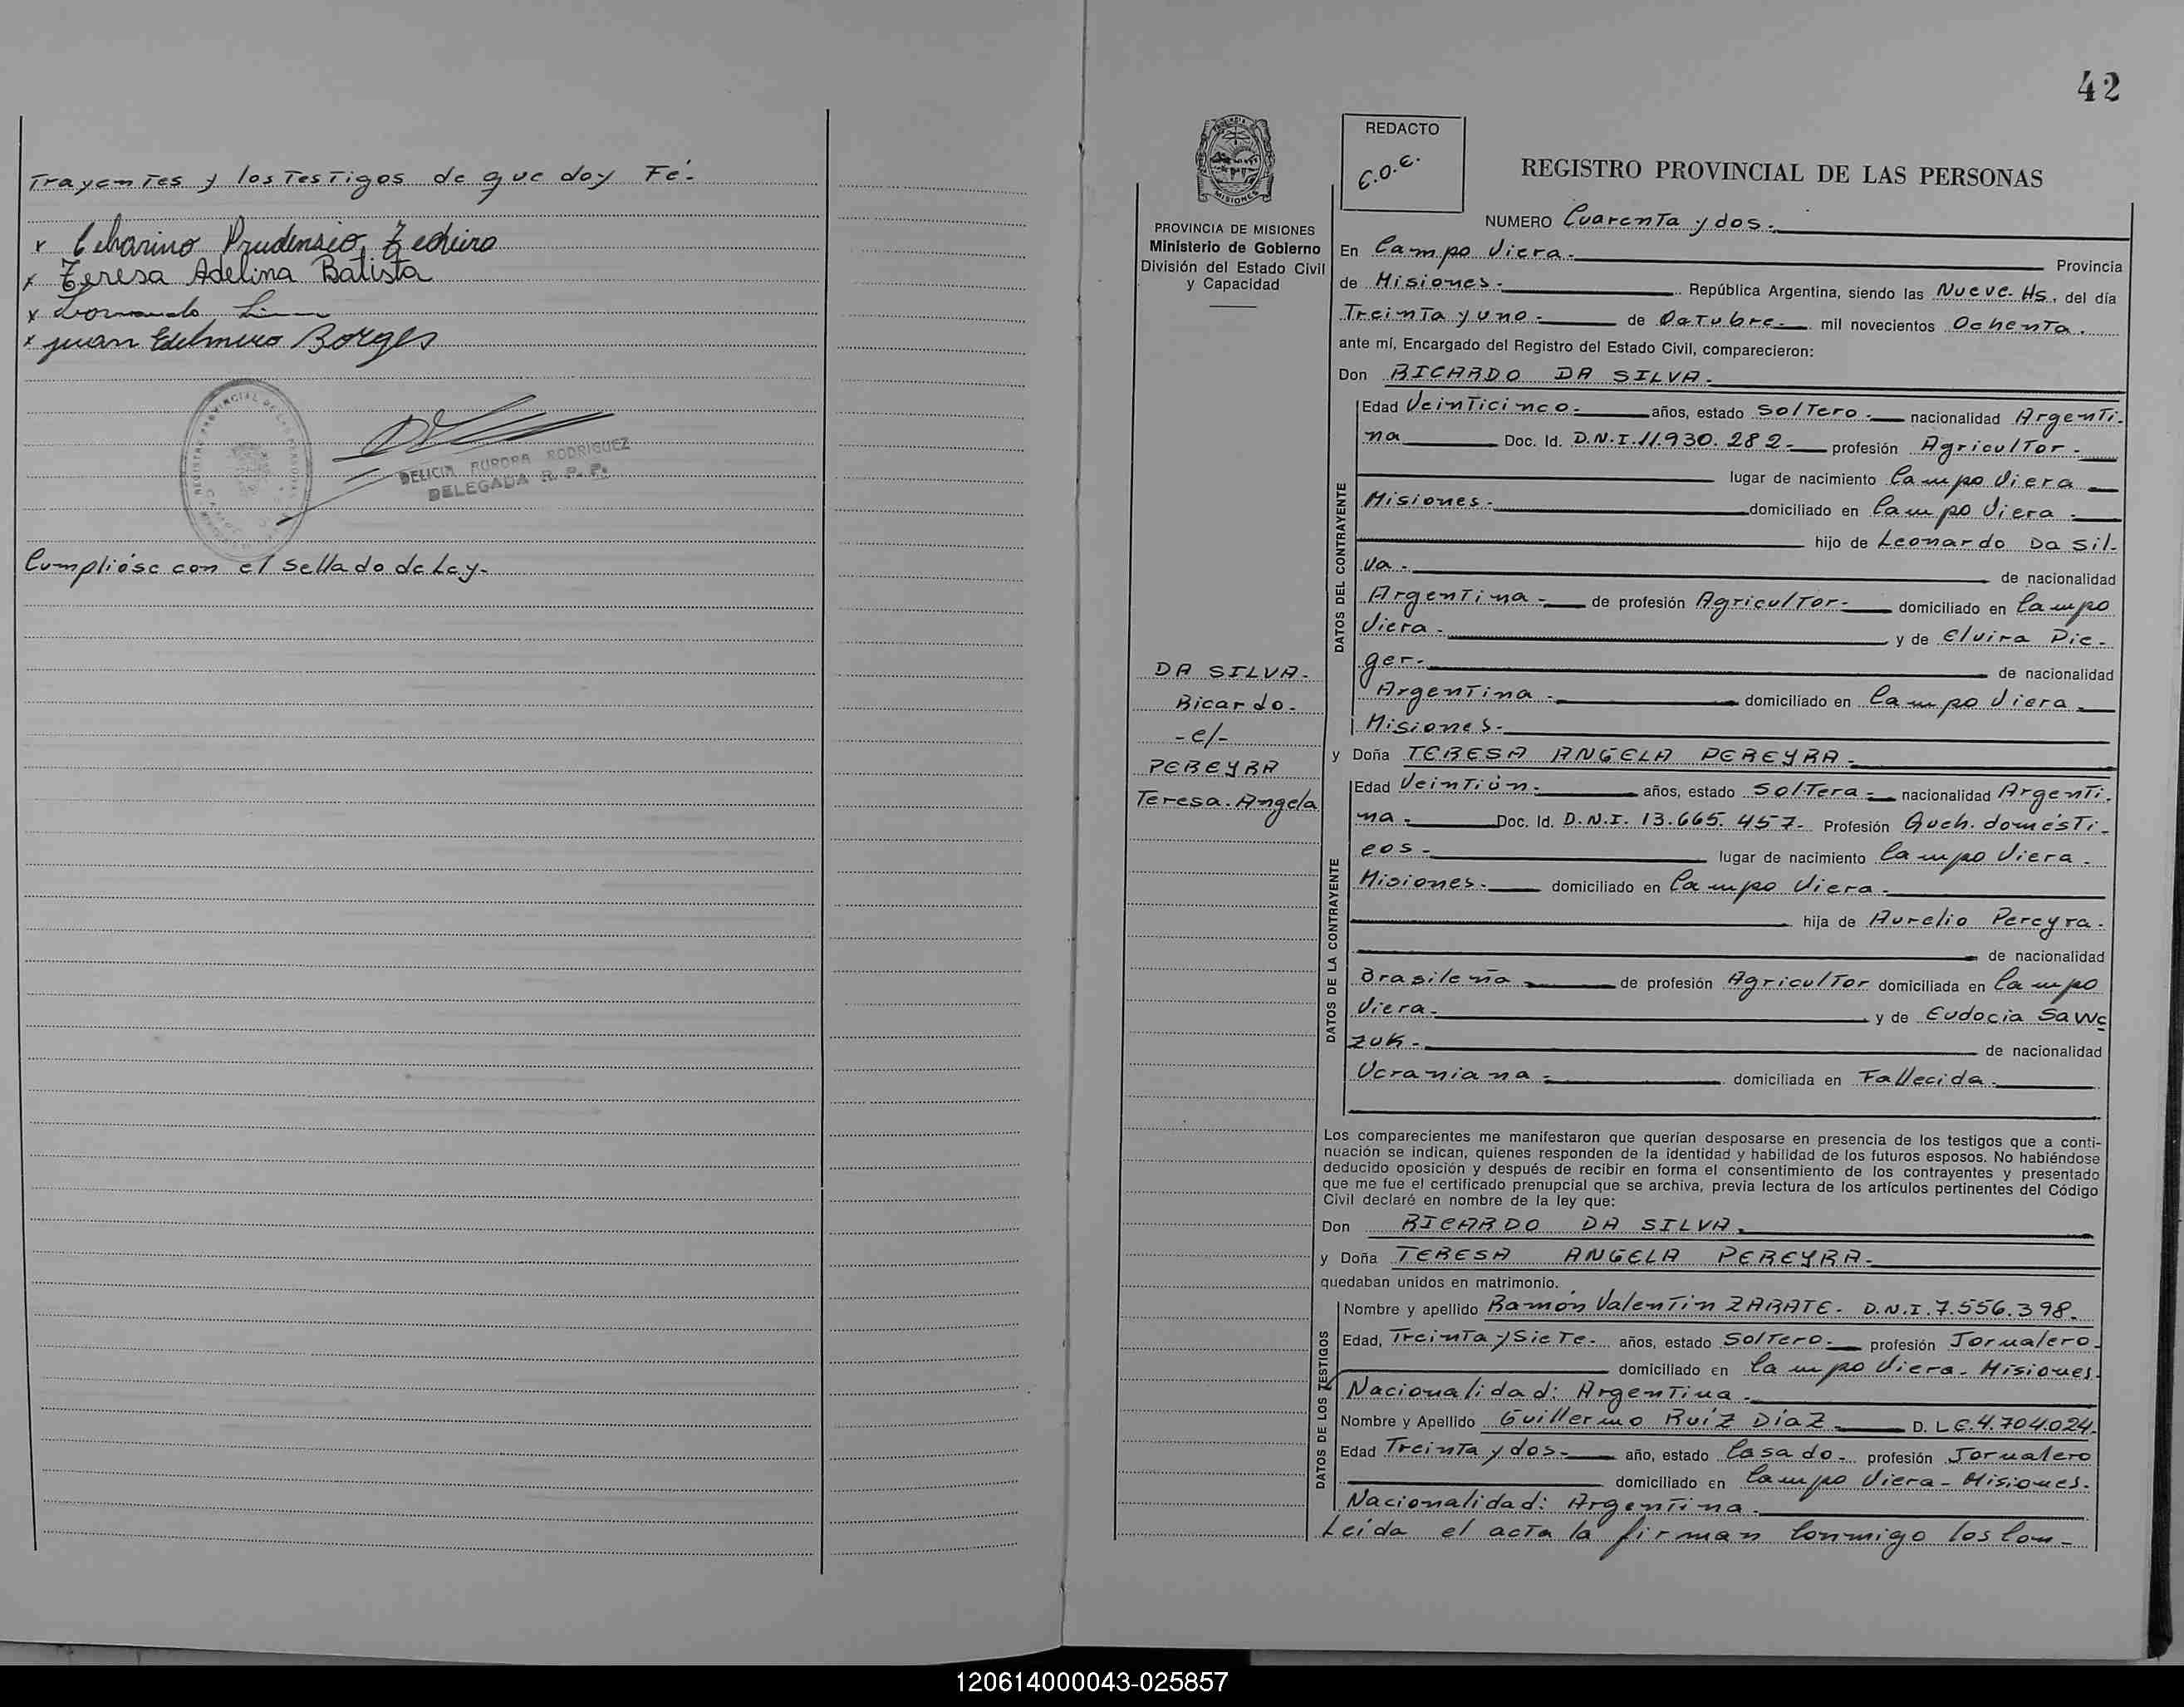 Trayentes y los Testigos de que doy Fé.-
x Prudensio
x Teresa Adelina Batista
x
x Juan Borges
REGISTRO PROVINCIAL DE LAS PERSONAS
DELICIA AURORA RODRIGUEZ
DELEGADA R. P. P.
Cumplióse con el sellado de Ley-
42
PROVINCIA DE MISIONES
Ministerio de Gobierno
División del Estado Civil
y Capacidad
DA SILVA.
Ricardo-
-c/-
PEREYRA
Teresa.Angela
REDACTO
REGISTRO PROVINCIAL DE LAS PERSONAS
NUMERO Cuarenta y dos.-
En Campo Viera.- Provincia
de Misiones.- República Argentina, siendo las Nueve.Hs. del día
Treinta y uno.- de Octubre.- mil novecientos Ochenta.
ante mí, Encargado del Registro del Estado Civil, comparecieron:
Don RICARDO DA SILVA.-
DATOS DEL CONTRAYENTE
Edad Veinticinco.- años, estado Soltero.- nacionalidad Argenti-
na Doc. Id. D.N.I.11.930.282.- profesión Agricultor.-
lugar de nacimiento Campo Viera
Misiones.- domiciliado en Campo Viera.-
hijo de Leonardo Da Sil-
va.- de nacionalidad
Argentina.- de profesión Agricultor.- domiciliado en Campo
Viera.- y de Elvira Die-
ger.- de nacionalidad
Argentina.- domiciliado en Campo Viera.-
Misiones.-
y Doña TERESA ANGELA PEREYRA.-
DATOS DE LA CONTRAYENTE
Edad Veintiún.- años, estado Soltera.- nacionalidad Argenti-
na.- Doc. Id. D.N.I. 13.665.457- Profesión Queh. domésti-
cos.- lugar de nacimiento Campo Viera.
Misiones.- domiciliado en Campo Viera.-
hija de Aurelio Pereyra.-
de nacionalidad
Brasileña de profesión Agricultor domiciliada en Campo
Viera.- y de Eudocia Sawc
zuk.- de nacionalidad
Ucraniana.- domiciliada en Fallecida.-
Los comparecientes me manifestaron que querían desposarse en presencia de los testigos que a conti-
nuación se indican, quienes responden de la identidad y habilidad de los futuros esposos. No habiéndose
deducido oposición y después de recibir en forma el consentimiento de los contrayentes y presentado
que me fue el certificado prenupcial que se archiva, previa lectura de los artículos pertinentes del Código
Civil declaré en nombre de la ley que:
Don RICARDO DA SILVA.
y Doña TERESA ANGELA PEREYRA.-
quedaban unidos en matrimonio.
DATOS DE LOS TESTIGOS
Nombre y apellido Ramón Valentín ZARATE- D.N.I.7.556.398.-
Edad, Treinta y Siete.- años, estado Soltero.- profesión Jornalero-
domiciliado en Campo Viera- Misiones.
Nacionalidad: Argentina.-
Nombre y Apellido Guillermo Ruíz Díaz D. L E.4.704.024.
Edad Treinta y dos.- año, estado Casado- profesión Jornalero
domiciliado en Campo Viera- Misiones.
Nacionalidad: Argentina.-
Leída el acta la firman Conmigo los Con-
120614000043-025857